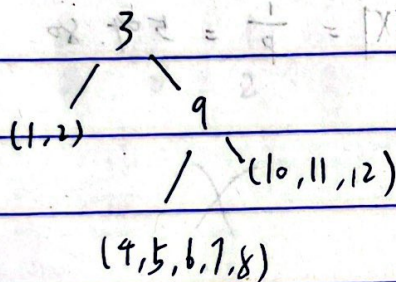 3
(1,2)
9
(10,11,12)
(4,5,6,7,8)